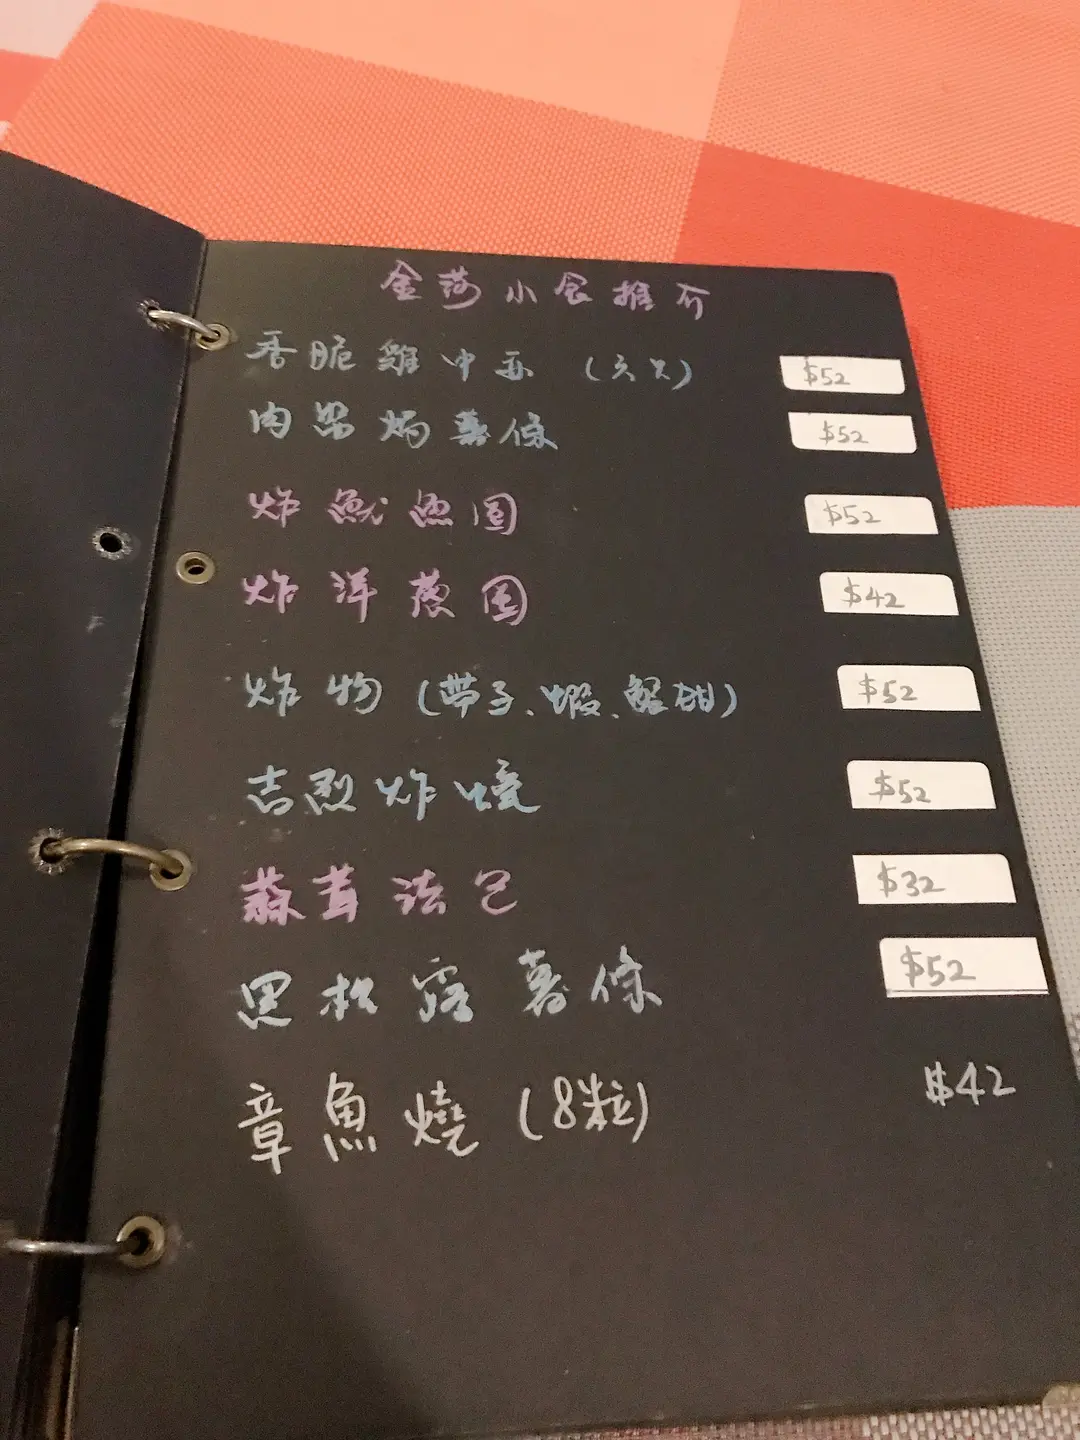 金莎小食推介
香脆雞中亦 (六只) $52
肉 焗薯條 $52
炸魷魚圈 $52
炸洋葱圈 $42
炸物 (帶子、蝦、蟹柑) $52
吉烈炸蠔 $52
蒜茸法包 $32
黑松露薯條 $52
章魚燒 (8粒) $42